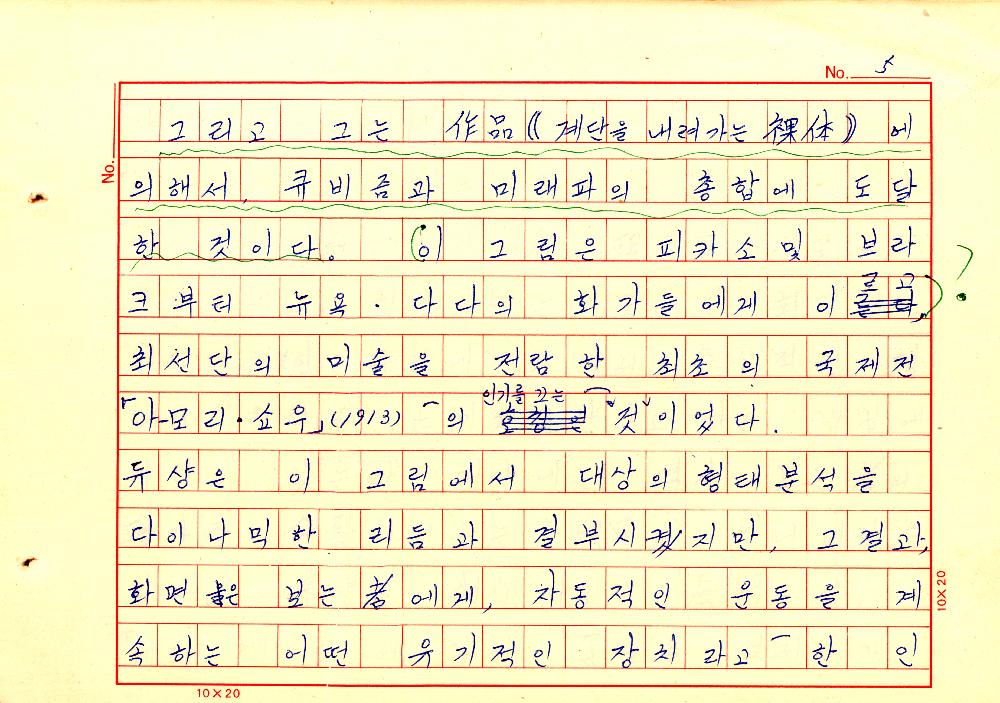 No. 5
No.
그리고 그는 作品《계단을 내려가는 裸体》에
의해서, 큐비즘과 미래파의 총합에 도달
한 것이다. 이 그림은 피카소및 브라
르고 ?
크부터 뉴욕·다다의 화가들에게 이
최선단의 미술을 전람한 최초의 국제전
인기를 끄는
「아-모리·쇼우」(1913)의 것이었다.
듀샹은 이 그림에서 대상의 형태분석을
다이나믹한 리듬과 결부시켰지만, 그결과,
화면은 보는 者에게, 자동적인 운동을 계
속하는 어떤 유기적인 장치라고 한 인
10×20
10×20